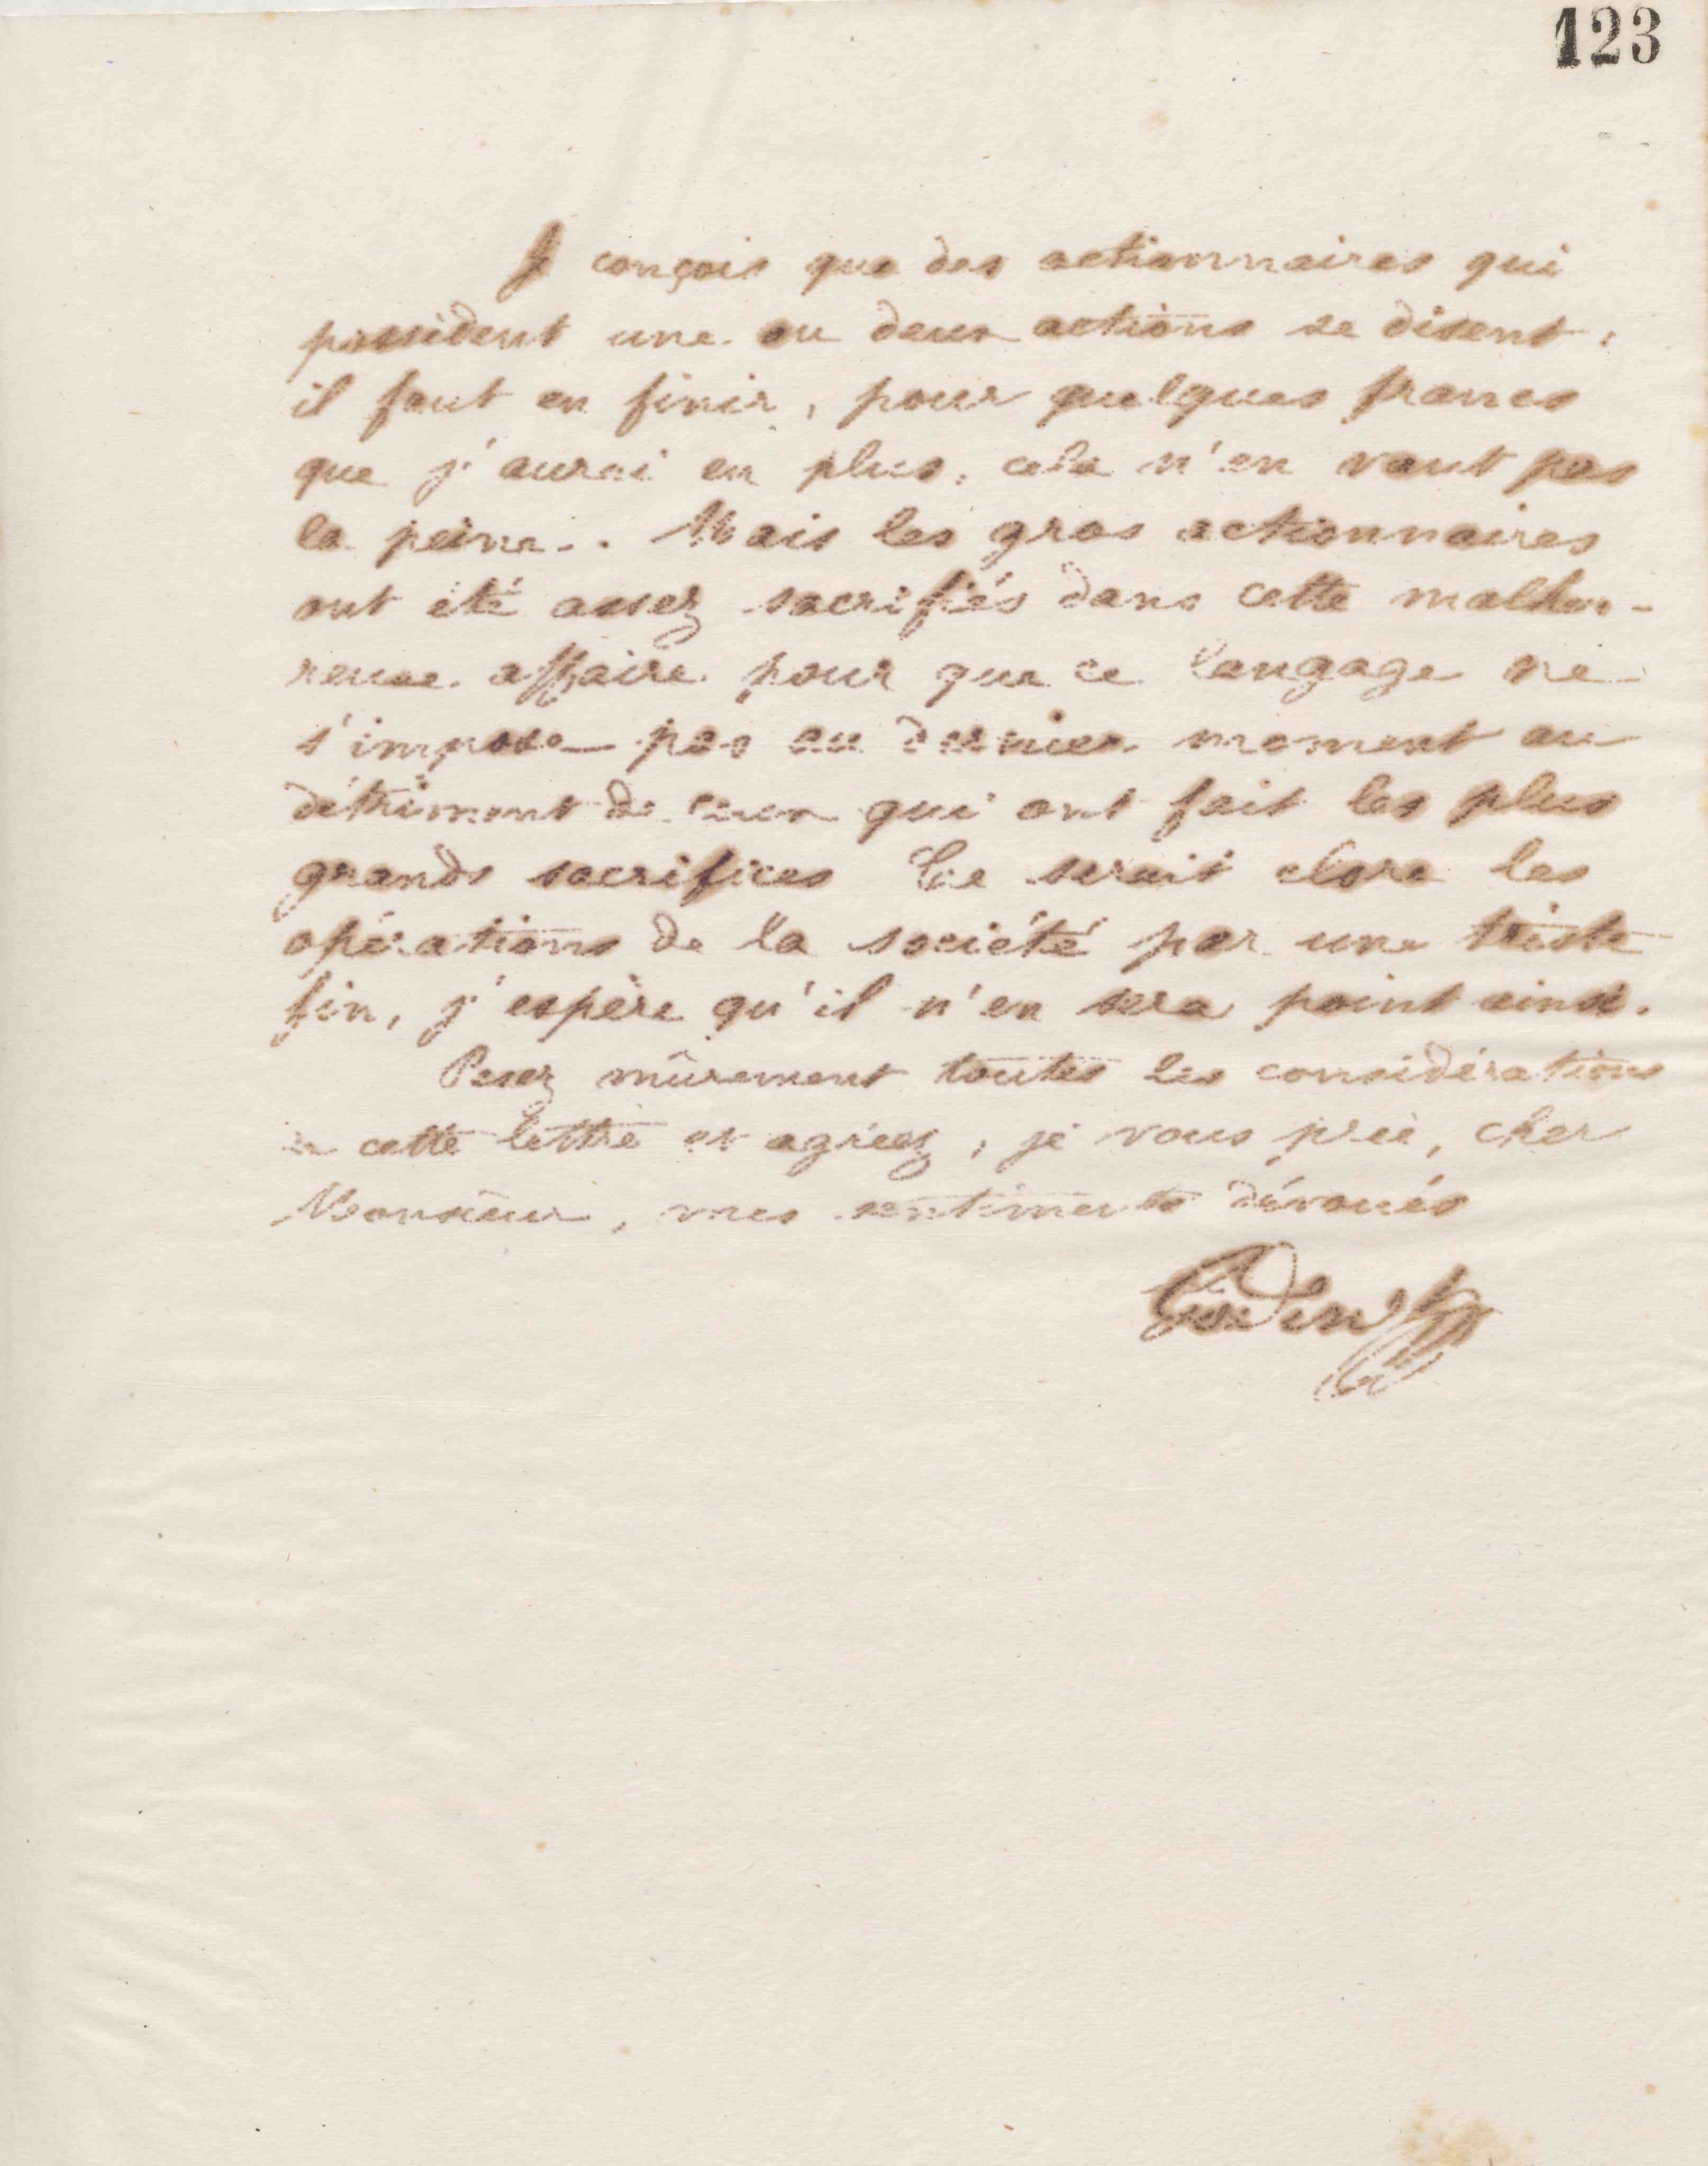 123
Je conçois que des actionnaires qui
possèdent une ou deux actions se disent :
il faut en finir, pour quelques francs
que j'aurai en plus, cela n'en vaut pas
la peine.. Mais les gros actionnaires
ont été assez sacrifiés dans cette malheu-
reuse affaire pour que ce langage ne
s'impose pas au dernier moment au
détriment de ceux qui ont fait les plus
grands sacrifices Ce serait clore les
opérations de la société par une triste
fin, j'espère qu'il n'en sera point ainsi.
Pesez mûrement toutes les considérations
de cette lettre et agréez, je vous prie, cher
Monsieur, mes sentiments dévoués
Godin